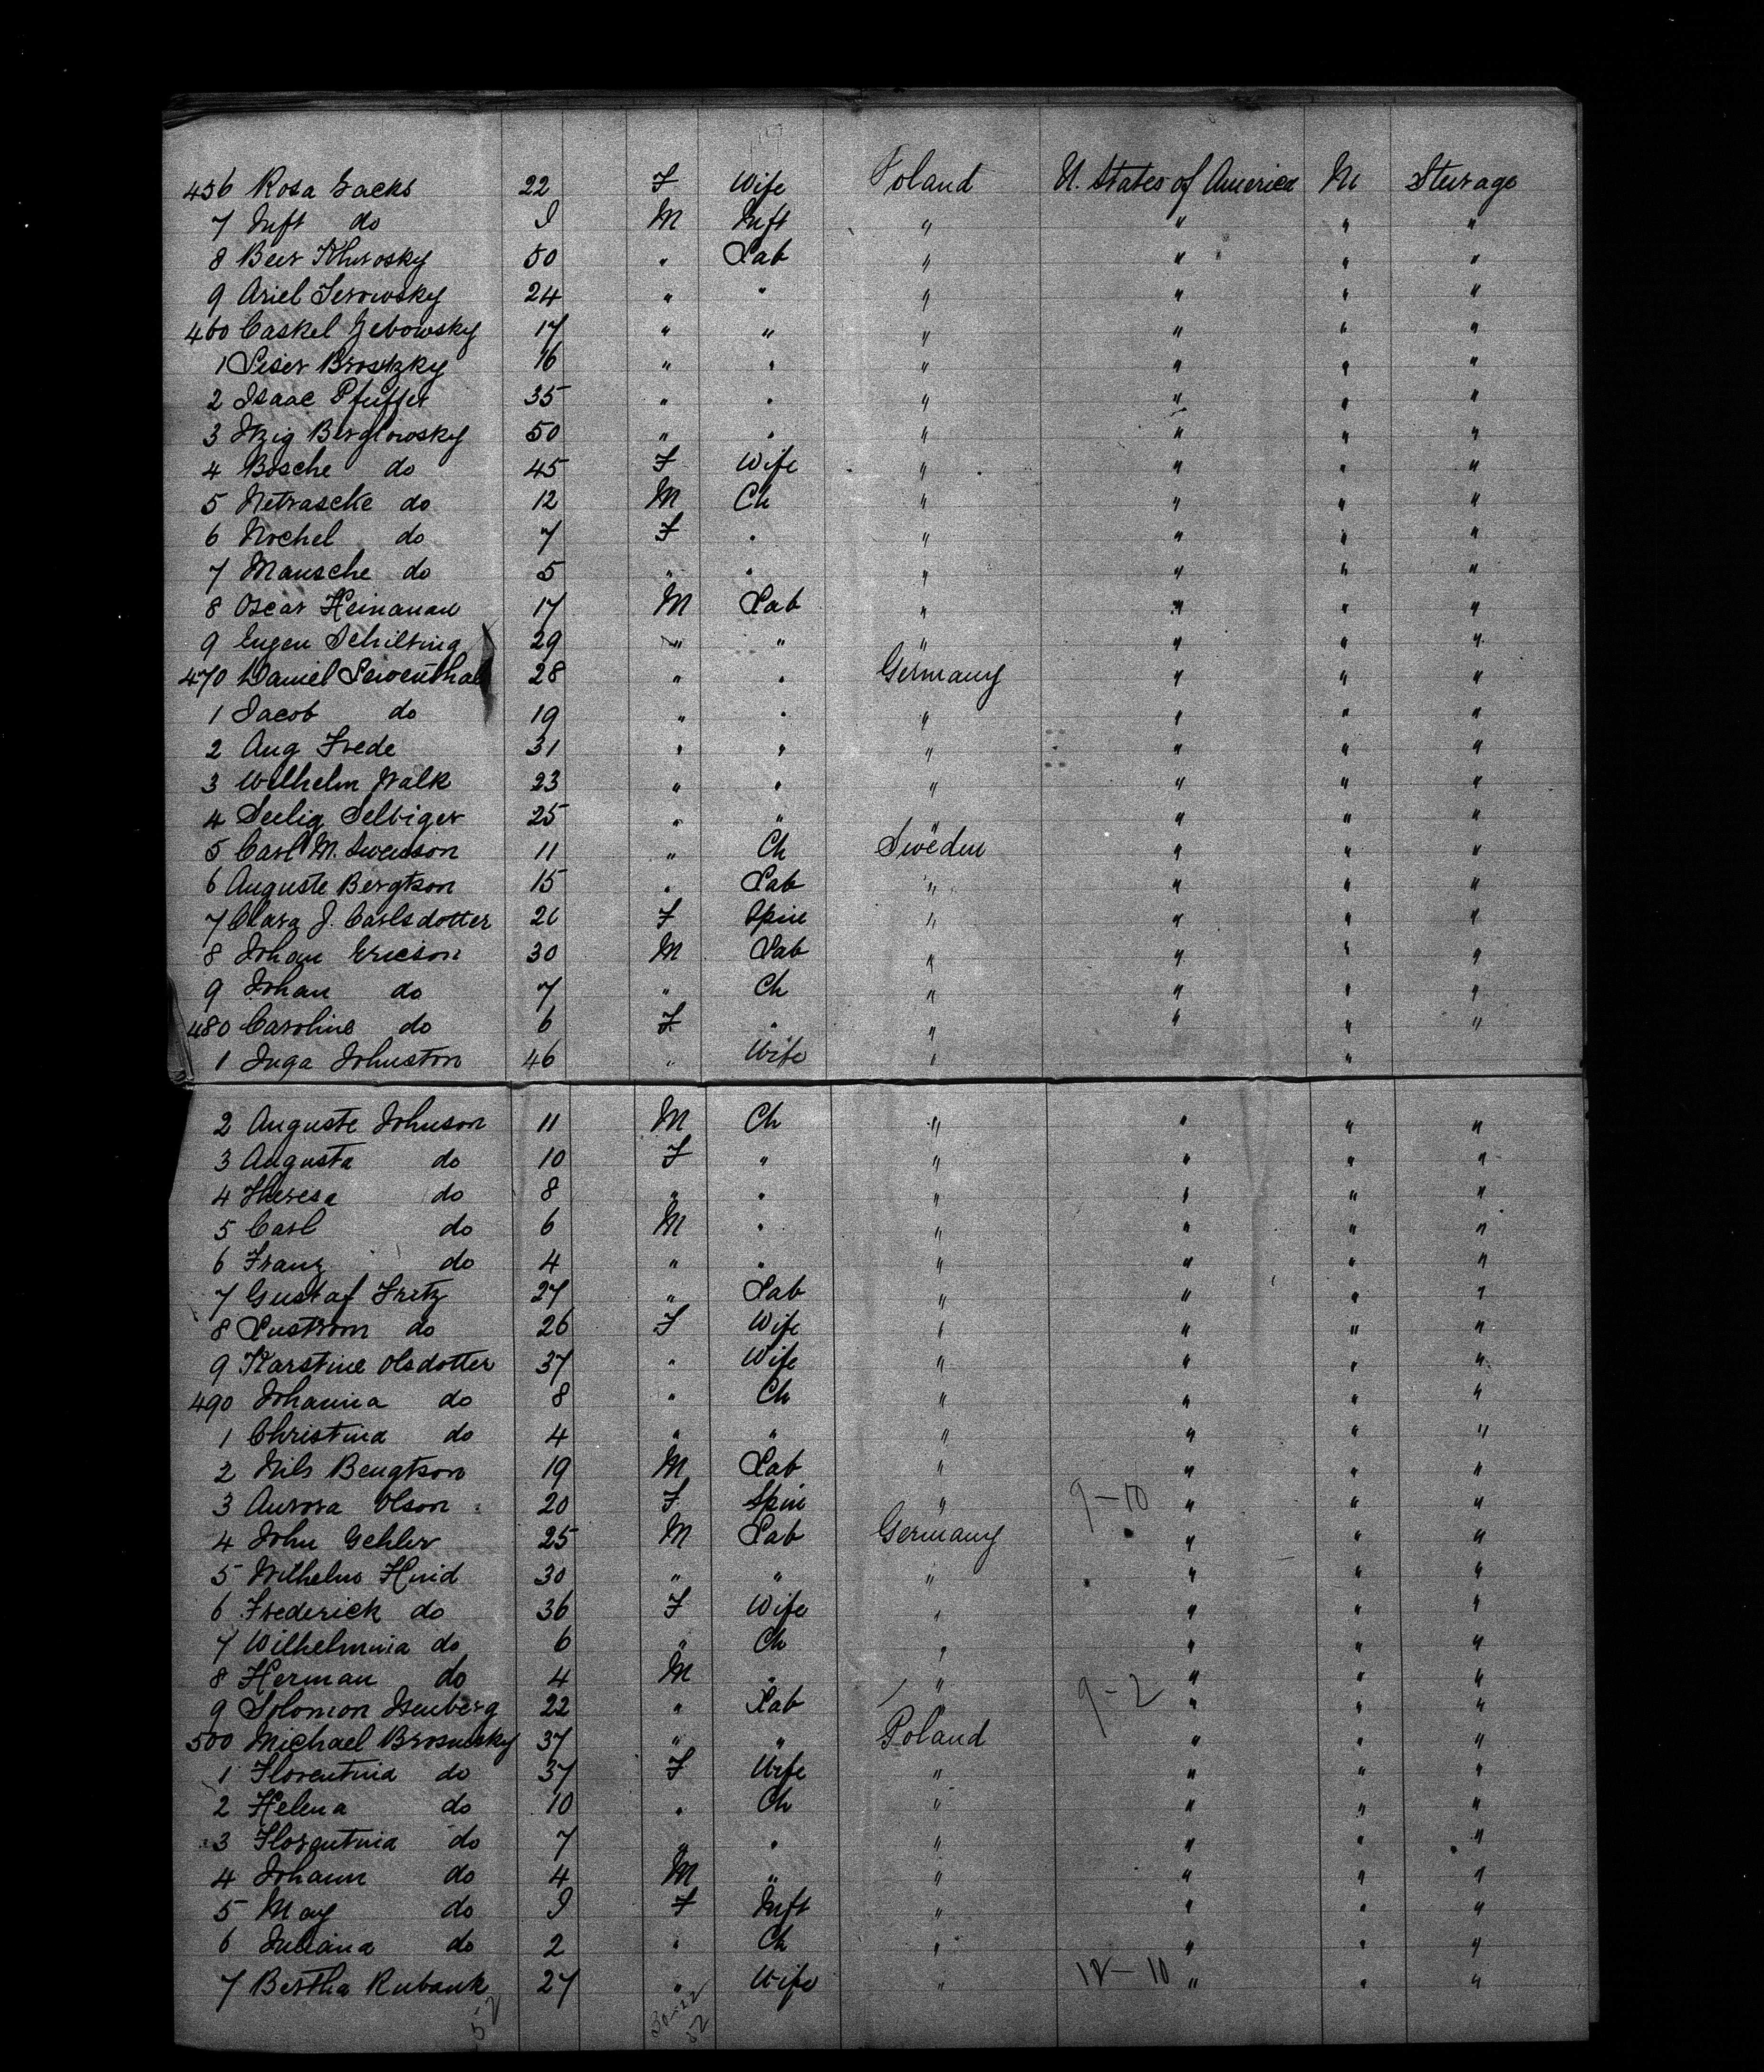 456 Rosa Sachs 22 F Wife Poland U. States of America M Sturage
7 Inft do I M Inft " " " "
8 Beer 50 " Lab " " " "
9 Ariel Serowsky 24 " " " " " "
460 Caskel Gebowsky 17 " " " " " "
1 Leser Brostzky 16 " " " " " "
2 Isaac Pfuffer 35 " " " " " "
3 Itzig Berglowsky 50 " " " " " "
4 Bosche do 45 F Wife " " " "
5 Netrascke do 12 M Ch " " " "
6 Nochel do 7 F " " " " "
7 Mansche do 5 " " " " " "
8 Oscar Heinanau 17 M Lab " " " "
9 Eugen Schilting 29 " " " " " "
470 Daniel Lewenthal 28 " " Germany " " "
1 Jacob do 19 " " " " " "
2 Aug Frede 31 " " " " " "
3 Wilhelm Walk 23 " " " " " "
4 Seelig Selbiger 25 " " " " " "
5 Carl M. Swenson 11 " Ch Sweden " " "
6 Auguste Bergtson 15 " Lab " " " "
7 Clara J. Carlsdotter 26 F Spin " " " "
8 Johan Ericson 30 M Lab " " " "
9 Johan do 7 " Ch " " " "
480 Caroline do 6 F " " " " "
1 Inga Johnston 46 " Wife " "
2 Auguste Johnson 11 M Ch " " " "
3 Augusta do 10 F " " " " "
4 Theresa do 8 " " " " " "
5 Carl do 6 M " " " " "
6 Franz do 4 " " " " " "
7 Gustaf Fritz 27 " Lab " " " "
8 Lustrom do 26 F Wife " " " "
9 Karstine Olsdotter 37 " Wife " " " "
490 Johanna do 8 " Ch " " " "
1 Christina do 4 " " " " " "
2 Nils Bengtson 19 M Lab " " " "
3 Aurora Olson 20 F Spin " 9-10 " " "
4 John Gehler 25 M Lab Germany " " "
5 Wilhelm Huid 30 " " " " " "
6 Frederick do 36 F Wife " " " "
7 Wilhelmina do 6 " Ch " " " "
8 Herman do 4 M " " " " "
9 Solomon Isenberg 22 " Lab " 9-2 " " "
500 Michael Brosinsky 37 " " Poland " " "
1 Florentina do 37 F Wife " " " "
2 Helena do 10 " Ch " " " "
3 Florentina do 7 " " " " " "
4 Johann do 4 M " " " " "
5 May do I F Inft " " " "
6 Juliana do 2 " Ch " " " "
7 Bertha Rubank 27 " Wife " 12-10 " " "
52 30-22
52